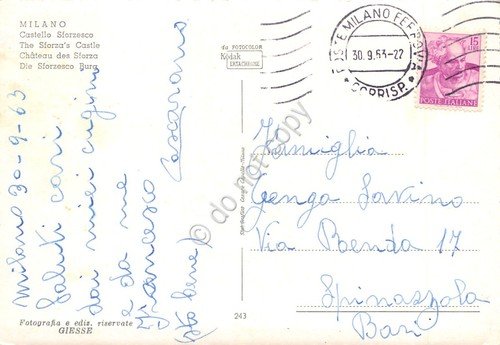 MILANO
Castello Sforzesco
The Sforza's Castle
Château des Sforza
Die Sforzesco Burg
da FOTOCOLOR
Kodak
EKTACHROME
POSTE MILANO FERROVIA
30.9.63-22
CORRISP.
15
LIRE
POSTE ITALIANE
Milano 30-9-63
Saluti cari
dai miei cugini
e da me
Francesco
(Sto bene)
Famiglia
Tenga Savino
Via Benda 17
Spinazzola
Bari
do not copy
Fotografia e ediz. riservate
GIESSE
243